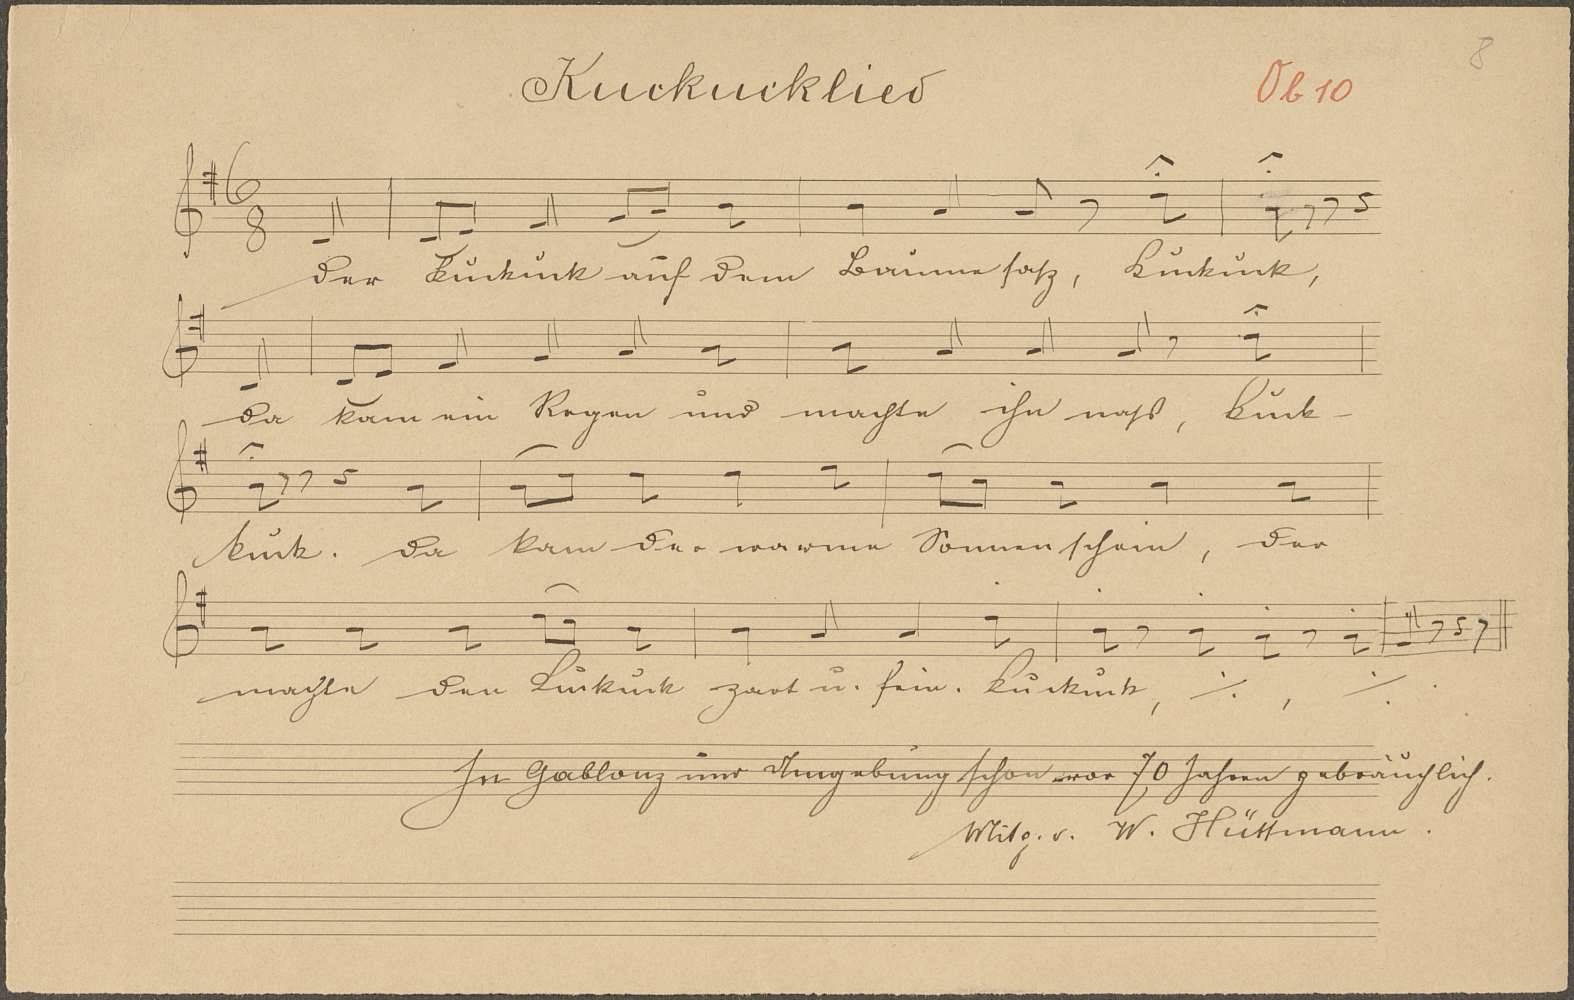 Kuckucklied
Ob 10
8
6
8
der Kuckuck auf dem Baume saß, Kuckuck,
da kam ein Regen und machte ihn naß, Kuck-
kuck. da kam der warme Sonnenschein, der
machte den Kuckuck zart u. fein. Kuckuck, ·/. , ·/. .
In Gablonz und Umgebung schon vor 70 Jahren gebräuchlich.
Mitg. v. W. Hüttmann.